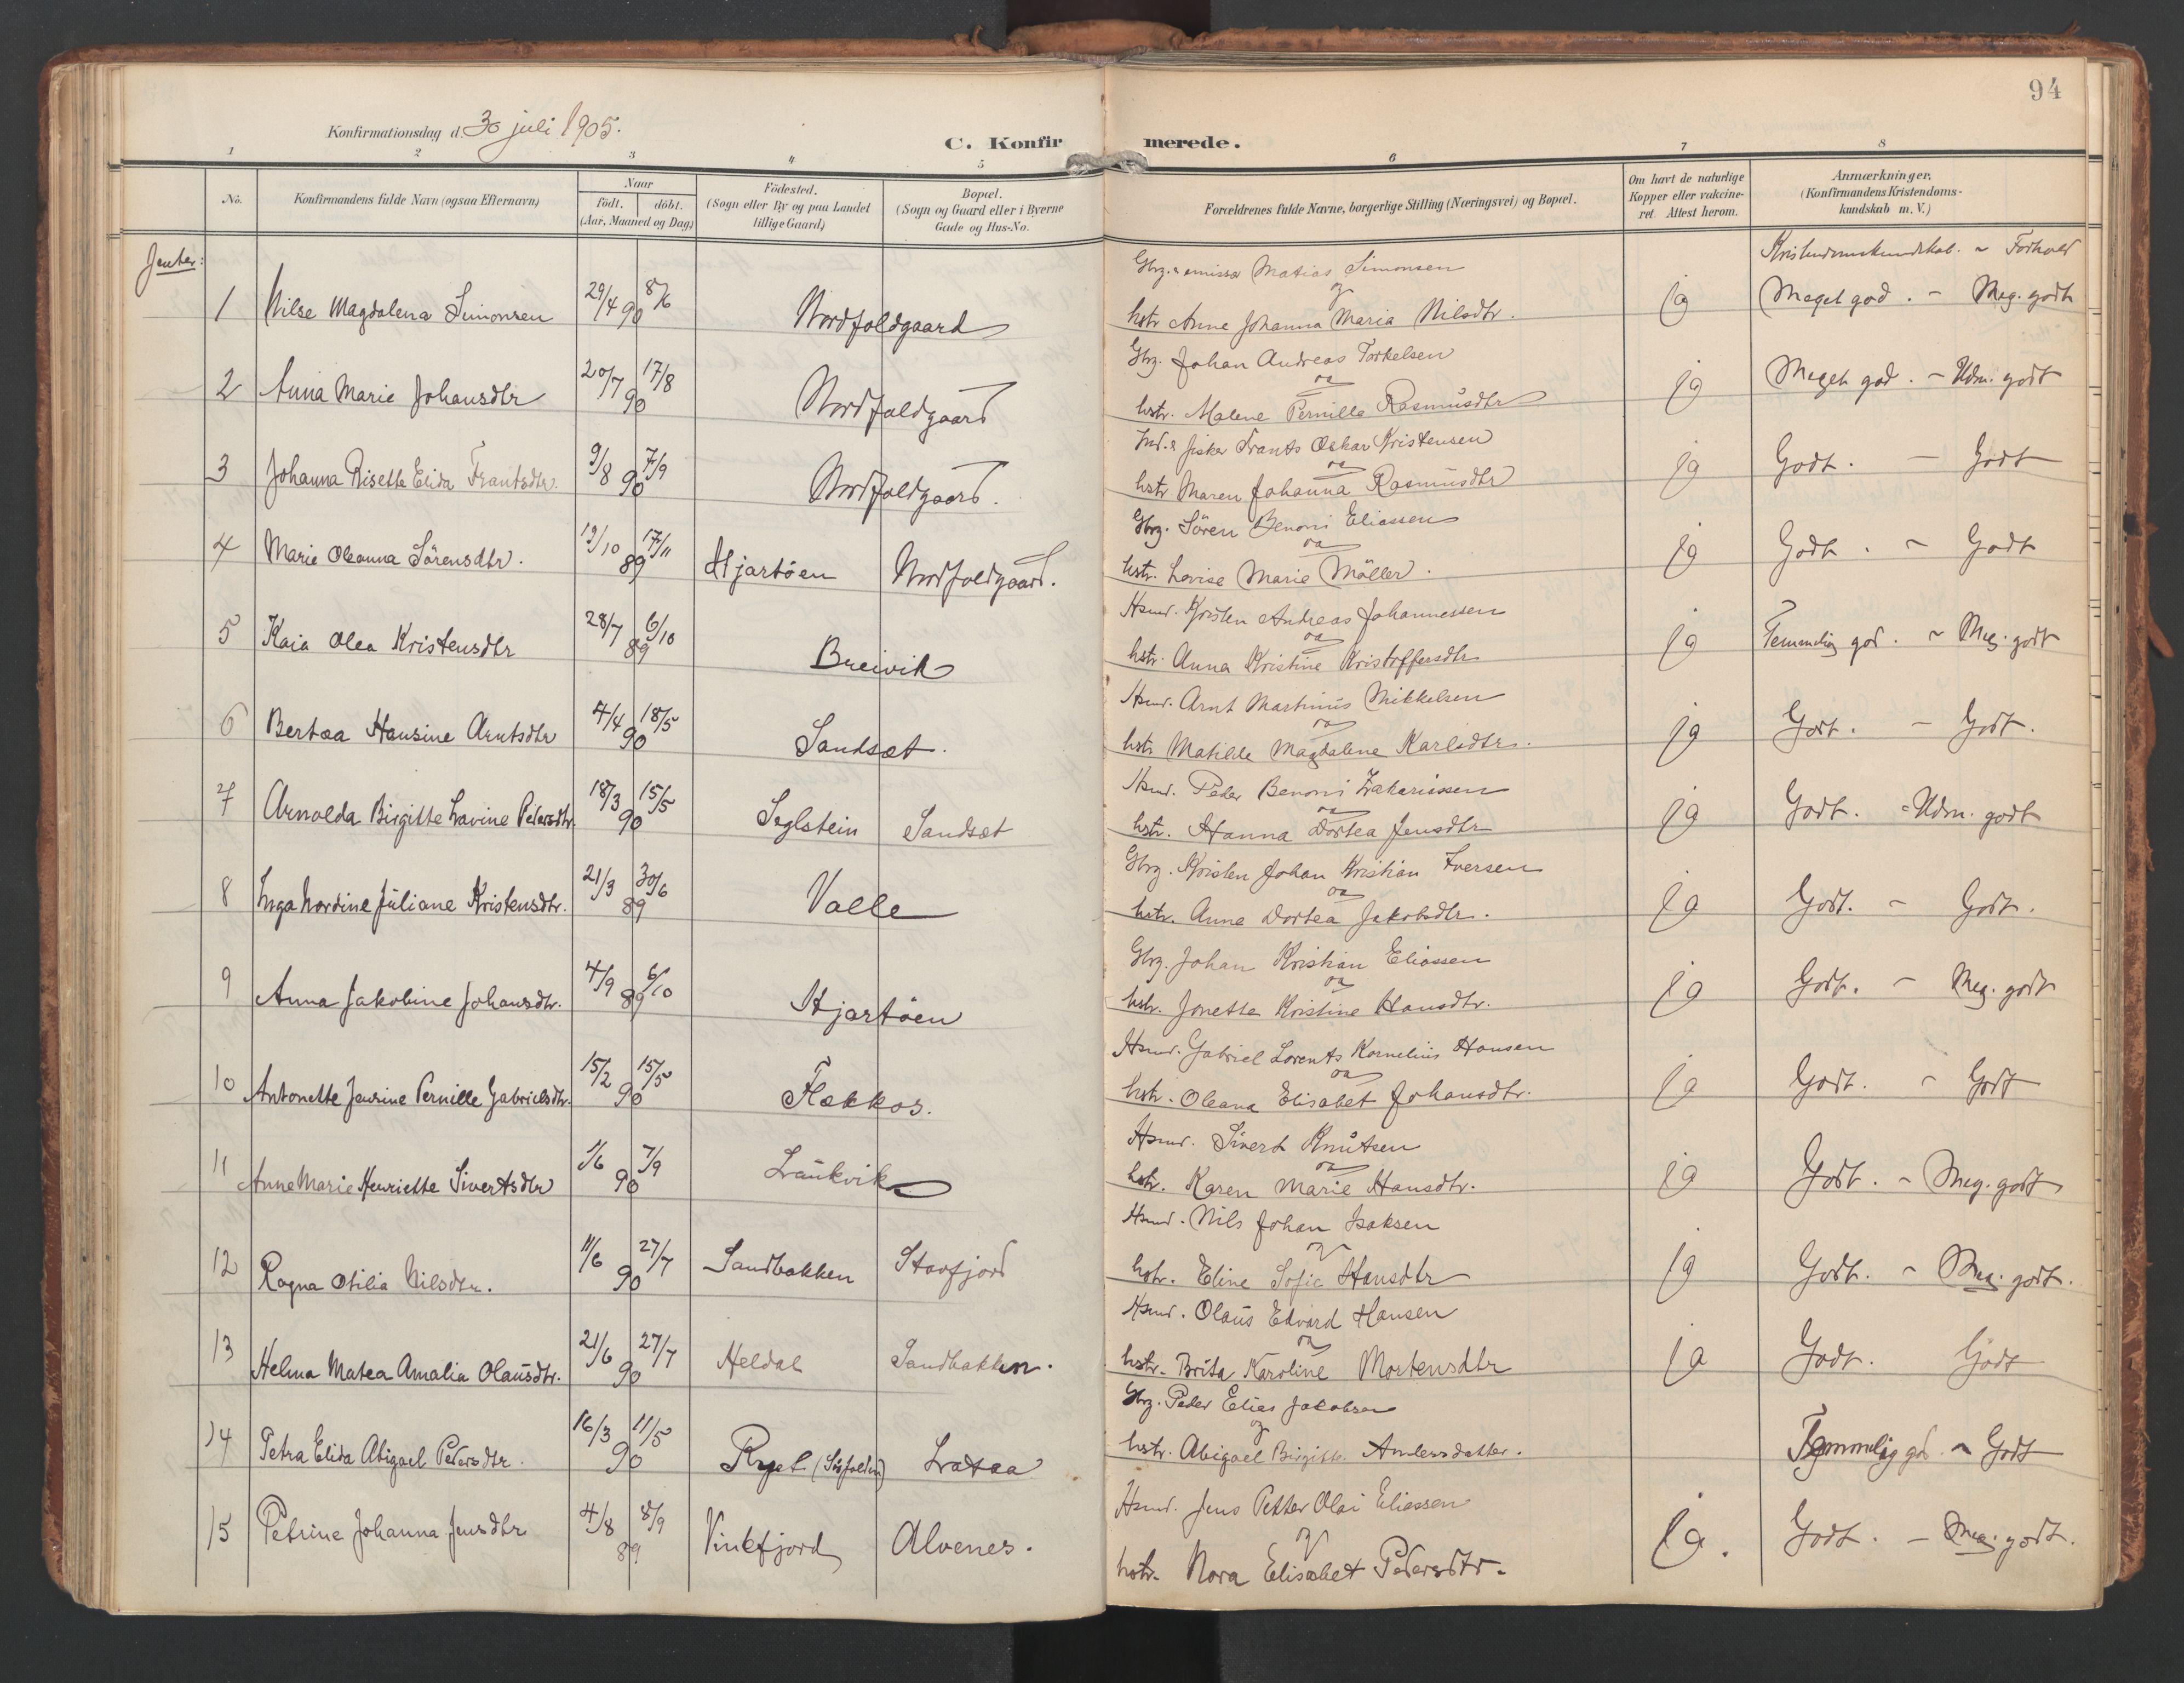 94
Konfirmationsdag d. 30 juli 1905.
C. Konfirmerede.
1 2 3 4 5 6 7 8
No. Konfirmandens fulde Navn (ogsaa Efternavn) Naar födt. döbt. (Aar, Maaned og Dag) Födested. (Sogn eller By og paa Landet tillige Gaard) Bopæl. (Sogn og Gaard eller i Byerne Gade og Hus-No. Forældrenes fulde Navne, borgerlige Stilling (Næringsvei) og Bopæl. Om havt de naturlige Kopper eller vakcineret. Attest herom. Anmærkninger. (Konfirmandens Kristendomskundskab m. V.)
Jenter:
Kristendomskundskab. ~ Forhold
Gbrg. & emissær Matias Simonsen
og
1 Nilse Magdalena Simonsen 29/4 90 8/6 Nordfoldgaard hstr Anne Johanna Maria Nilsdtr. ja Meget god. - Meg. godt
Gbrg. Johan Andreas Torkelsen
og
2 Anna Marie Johansdtr 20/7 90 17/8 Nordfoldgaard hstr. Malene Pernille Rasmusdtr ja Meget god. - Udm. godt
Ind. & fisker Frants Oskar Kristensen
og
3 Johanna Risette Elida Frantsdtr. 9/8 90 7/9 Nordfoldgaard. hstr Maren Johanna Rasmusdtr ja Godt. - Godt
Gbrg. Sören Benoni Eliassen
og
4 Marie Oleanna Sörensdtr. 19/10 89 17/11 Hjartöen Nordfoldgaard. hstr. Lovise Marie Möller. ja Godt. ~ Godt
Hsmd. Kristen Andreas Johannessen
og
5 Kaia Olea Kristensdtr 28/7 89 6/10 Breivik hstr. Anna Kristine Kristoffersdtr ja Temmelig god. ~ Meg. godt
Hsmd. Arnt Martinus Mikkelsen
og
6 Bertea Hansine Arntsdtr 4/4 90 18/5 Sandsæt. hstr Matilde Magdalene Karlsdtr. ja Godt. - Godt.
Hsmd. Peder Benoni Zakariassen
og
7 Arnolda Birgitte Lavine Pedersdtr. 18/3 90 15/5 Seglstein Sandsæt hstr. Hanna Dortea Jensdtr ja Godt. - Udm. godt
Gbrg. Kristen Johan Kristian Iversen
og
8 Inga Nordine Juliane Kristensdtr. 21/3 89 30/6 Valle hstr. Anne Dortea Jakobsdtr. ja Godt. - Godt.
Gbrg. Johan Kristian Eliassen
og
9 Anna Jakobine Johansdtr. 4/9 89 6/10 Hjartöen hstr. Jonette Kristine Hansdtr. ja Godt. - Meg. godt
Hsmd. Gabriel Lorents Kornelius Hansen
og
10 Antonette Jensine Pernille Gabrielsdtr. 15/2 90 15/5 Flekkos. hstr. Oleana Elisabet Johansdtr. ja Godt. ~ Godt
Hsmd. Sivert Knutsen
og
11 Anne Marie Henriette Sivertsdtr 1/6 90 7/9 Laukvik hstr. Karen Marie Hansdtr. ja Godt. ~ Meg. godt
Hsmd. Nils Johan Isaksen
og
12 Ragna Otilia Nilsdtr. 11/6 90 27/7 Sandbakken Stavfjord hstr. Eline Sofie Hansdtr ja Godt. ~ Meg. godt.
Hsmd. Olaus Edvard Hansen
og
13 Helma Matea Amalia Olausdtr. 21/6 90 27/7 Heldal Sandbakken. hstr. Brita Karoline Mortensdtr ja Godt. Godt
Gbrg. Peder Elias Jakobsen
og
14 Petra Elida Abigael Pedersdtr. 16/3 90 11/5 Ryel (Sörfolden) Lataa hstr. Abigael Birgitte Andersdatter. Temmelig god. ~ Godt
Hsmd. Jens Petter Olai Eliassen
og
15 Petrine Johanna Jensdtr 4/8 89 8/9 Vinkfjord Alvenes. hstr. Nora Elisabet Pedersdtr. ja. Godt. - Meg. godt.